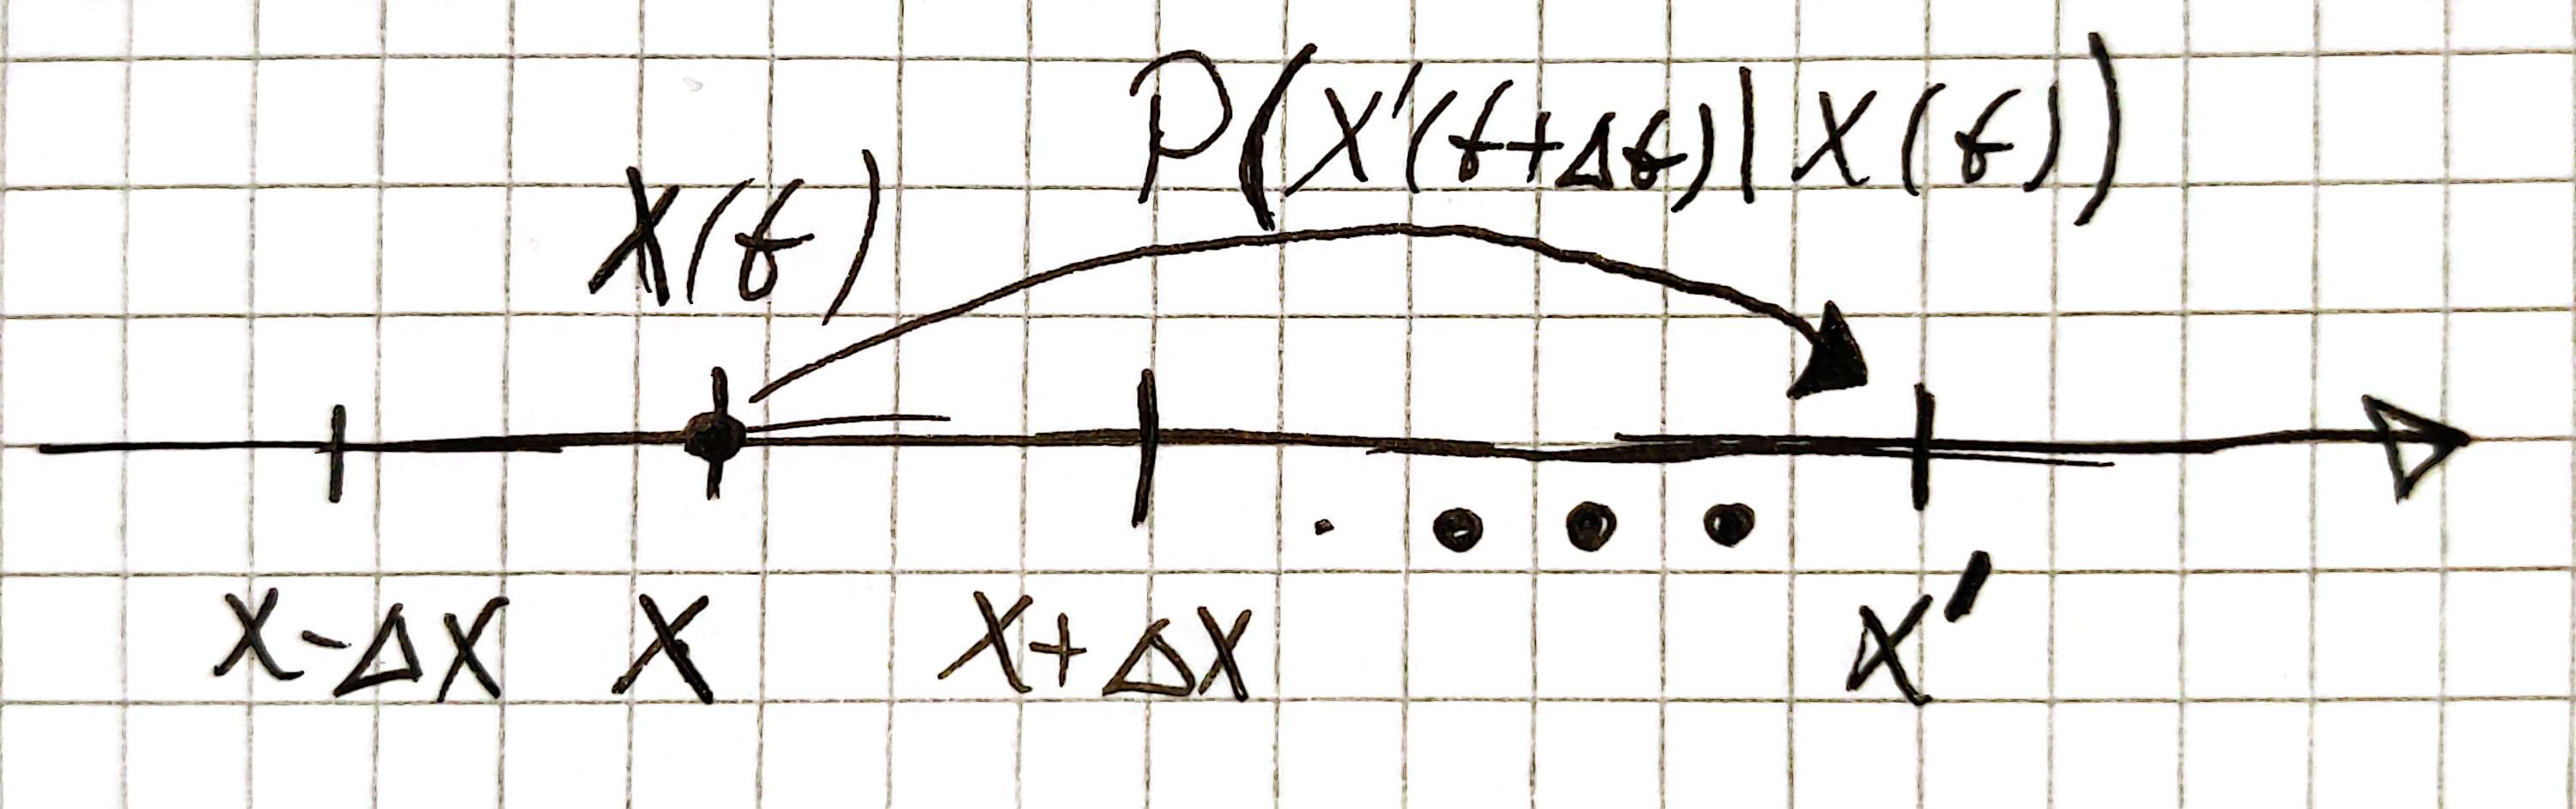 P(X'(t+Δt)|X(t))
X(t)
X-ΔX X X+ΔX X'